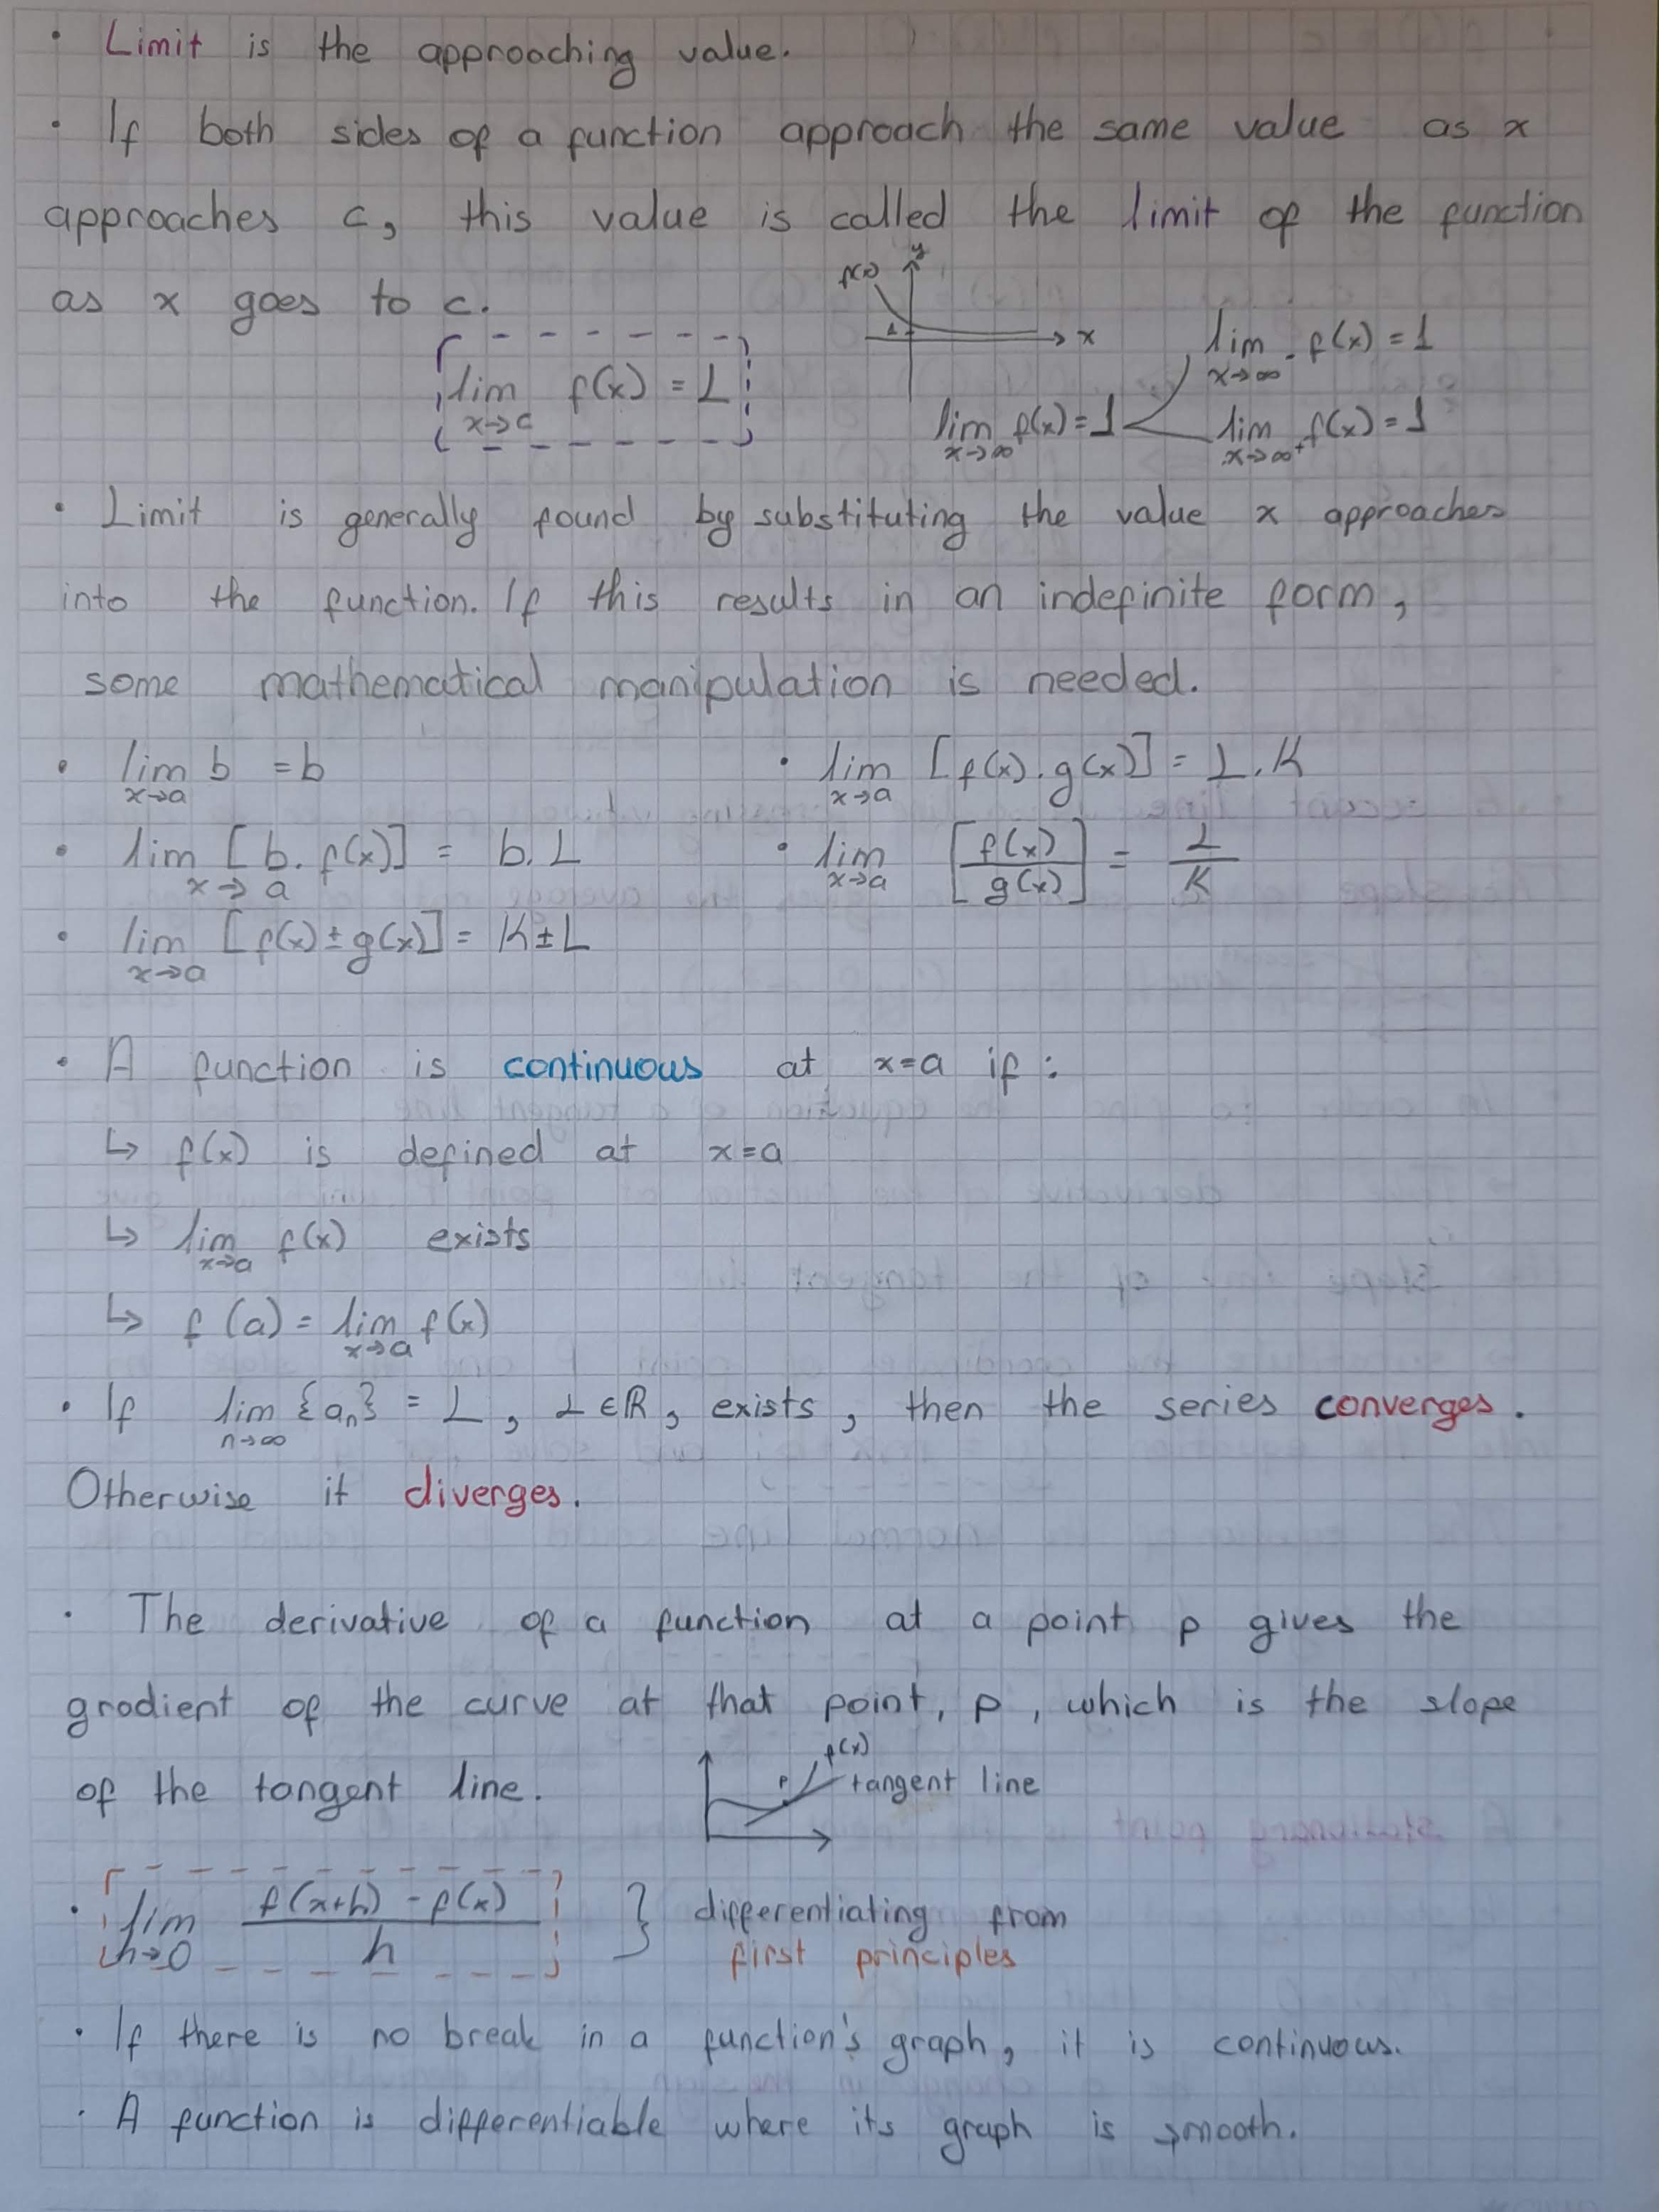 • Limit is the approaching value.
• If both sides of a function approach the same value as x
approaches c, this value is called the limit of the function
as x goes to c.
f(x) y
1 x
lim x→c f(x) = L
lim x→∞⁻ f(x) = 1
lim x→∞ f(x) = 1
lim x→∞⁺ f(x) = 1
• Limit is generally found by substituting the value x approaches
into the function. If this results in an indefinite form,
some mathematical manipulation is needed.
• lim x→a b = b
• lim x→a [b. f(x)] = b. L
• lim x→a [f(x) ± g(x)] = K ± L
• lim x→a [f(x) . g(x)] = L . K
• lim x→a [f(x)/g(x)] = L/K
• A function is continuous at x=a if :
↳ f(x) is defined at x=a
↳ lim x→a f(x) exists
↳ f(a) = lim x→a f(x)
• If lim n→∞ {aₙ} = L, L ∈ ℝ, exists, then the series converges.
Otherwise it diverges.
• The derivative of a function at a point p gives the
gradient of the curve at that point, p, which is the slope
of the tangent line.
f(x)
P tangent line
• lim h→0 f(x+h) - f(x) / h } differentiating from
first principles
• If there is no break in a function's graph, it is continuous.
• A function is differentiable where its graph is smooth.